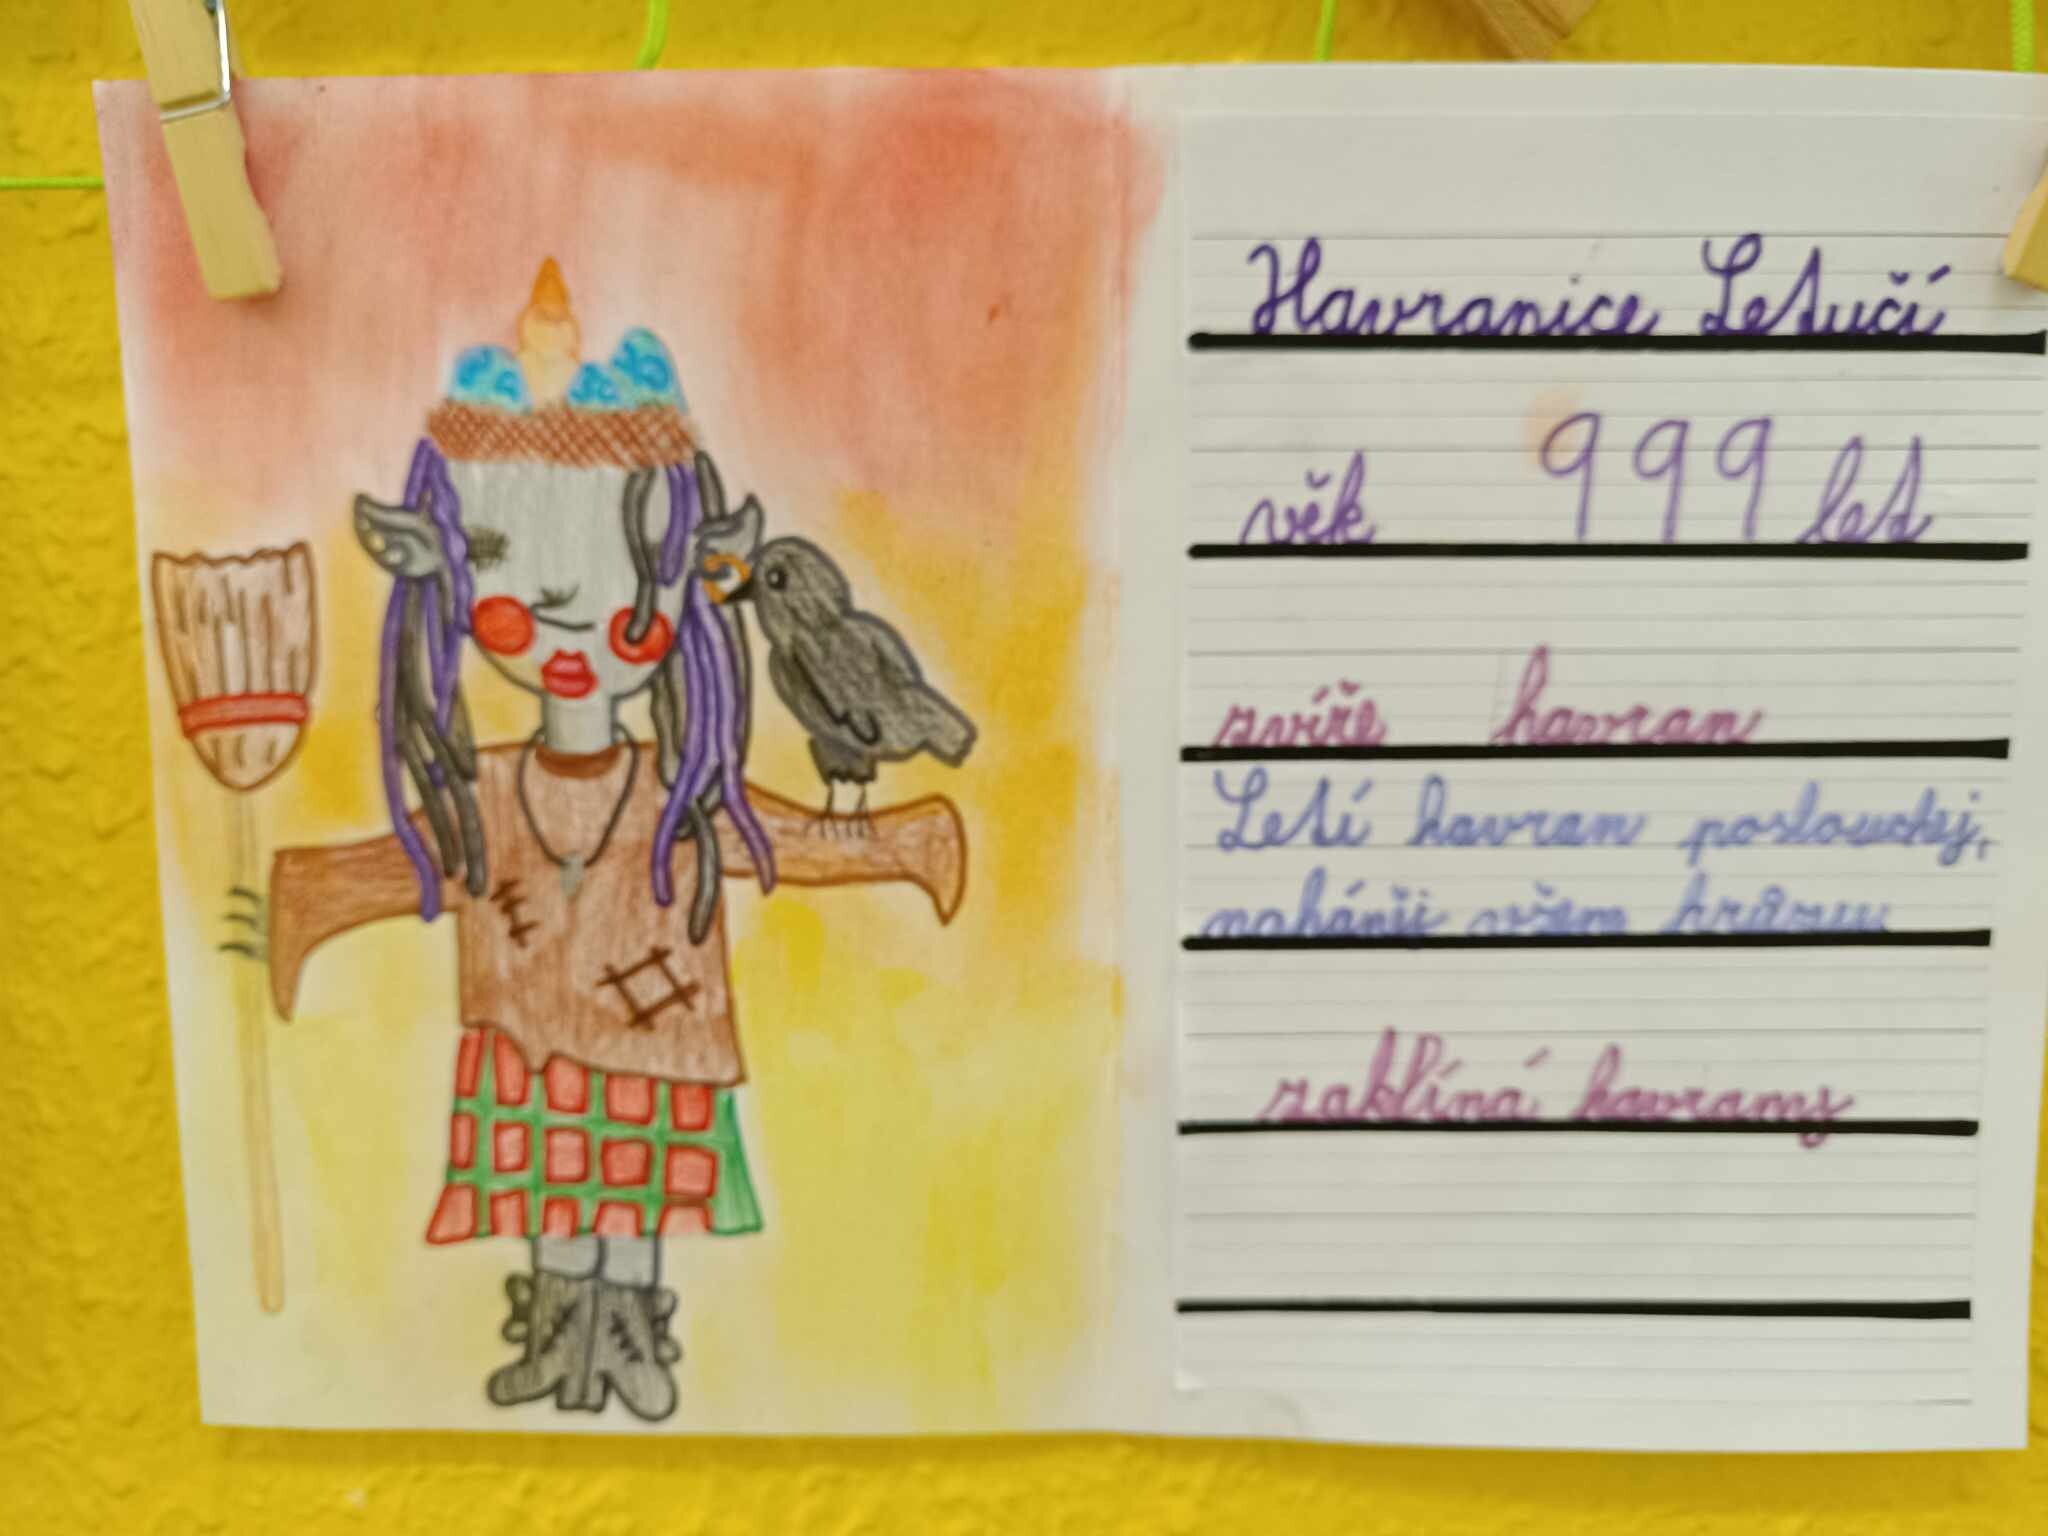 Havranice Letučí
věk 999 let
zvíře havran
Letí havran poslouchej,
naháněj všem hrůzu
zaklíná havrany